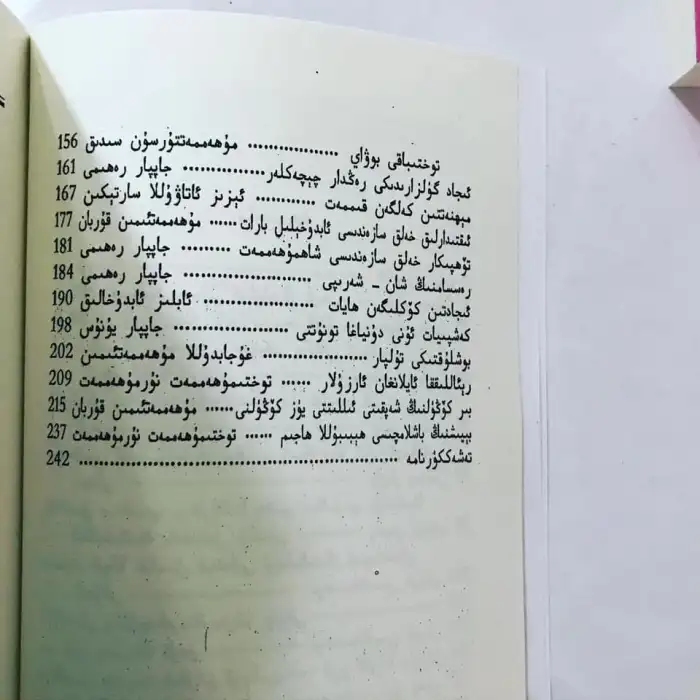 توختىباقى بوۋاي .................. مۇھەممەتتۇرسۇن سىدىق 156
ئىجاد گۈلزارىدىكى رەڭدار چېچەكلەر ................ جاپپار رەھىمى 161
مېھنەتتىن كەلگەن قىممەت ............ ئېزىز ئاتاۋۇللا سارتېكىن 167
ئىقتىدارلىق خەلق سازەندىسى ئابدۇخېلىل بارات ...... مۇھەممەتئىمىن قۇربان 177
تۆھپىكار خەلق سازەندىسى شاھمۇھەممەت .......... جاپپار رەھىمى 181
رەسسامنىڭ شان - شەرىپى ......................... جاپپار رەھىمى 184
ئىجادتىن كۆكلىگەن ھايات ...................... ئابلىز ئابدۇخالىق 190
كەشپىيات ئۇنى دۇنياغا تونۇتتى ...................... جاپپار يۇنۇس 198
بوشلۇقتىكى تۇلپار ..................... غوجابدۇللا مۇھەممەتئىمىن 202
رېئاللىققا ئايلانغان ئارزۇلار ...... توختىمۇھەممەت نۇرمۇھەممەت 209
بىر كۆڭۈلنىڭ شەپقىتى ئىللىتتى يۈز كۆڭۈلنى ...... مۇھەممەتئىمىن قۇربان 215
بېيىشنىڭ باشلامچىسى ھېبىبۇللا ھاجىم ...... توختىمۇھەممەت نۇرمۇھەممەت 237
تەشەككۈرنامە ................................................................ 242